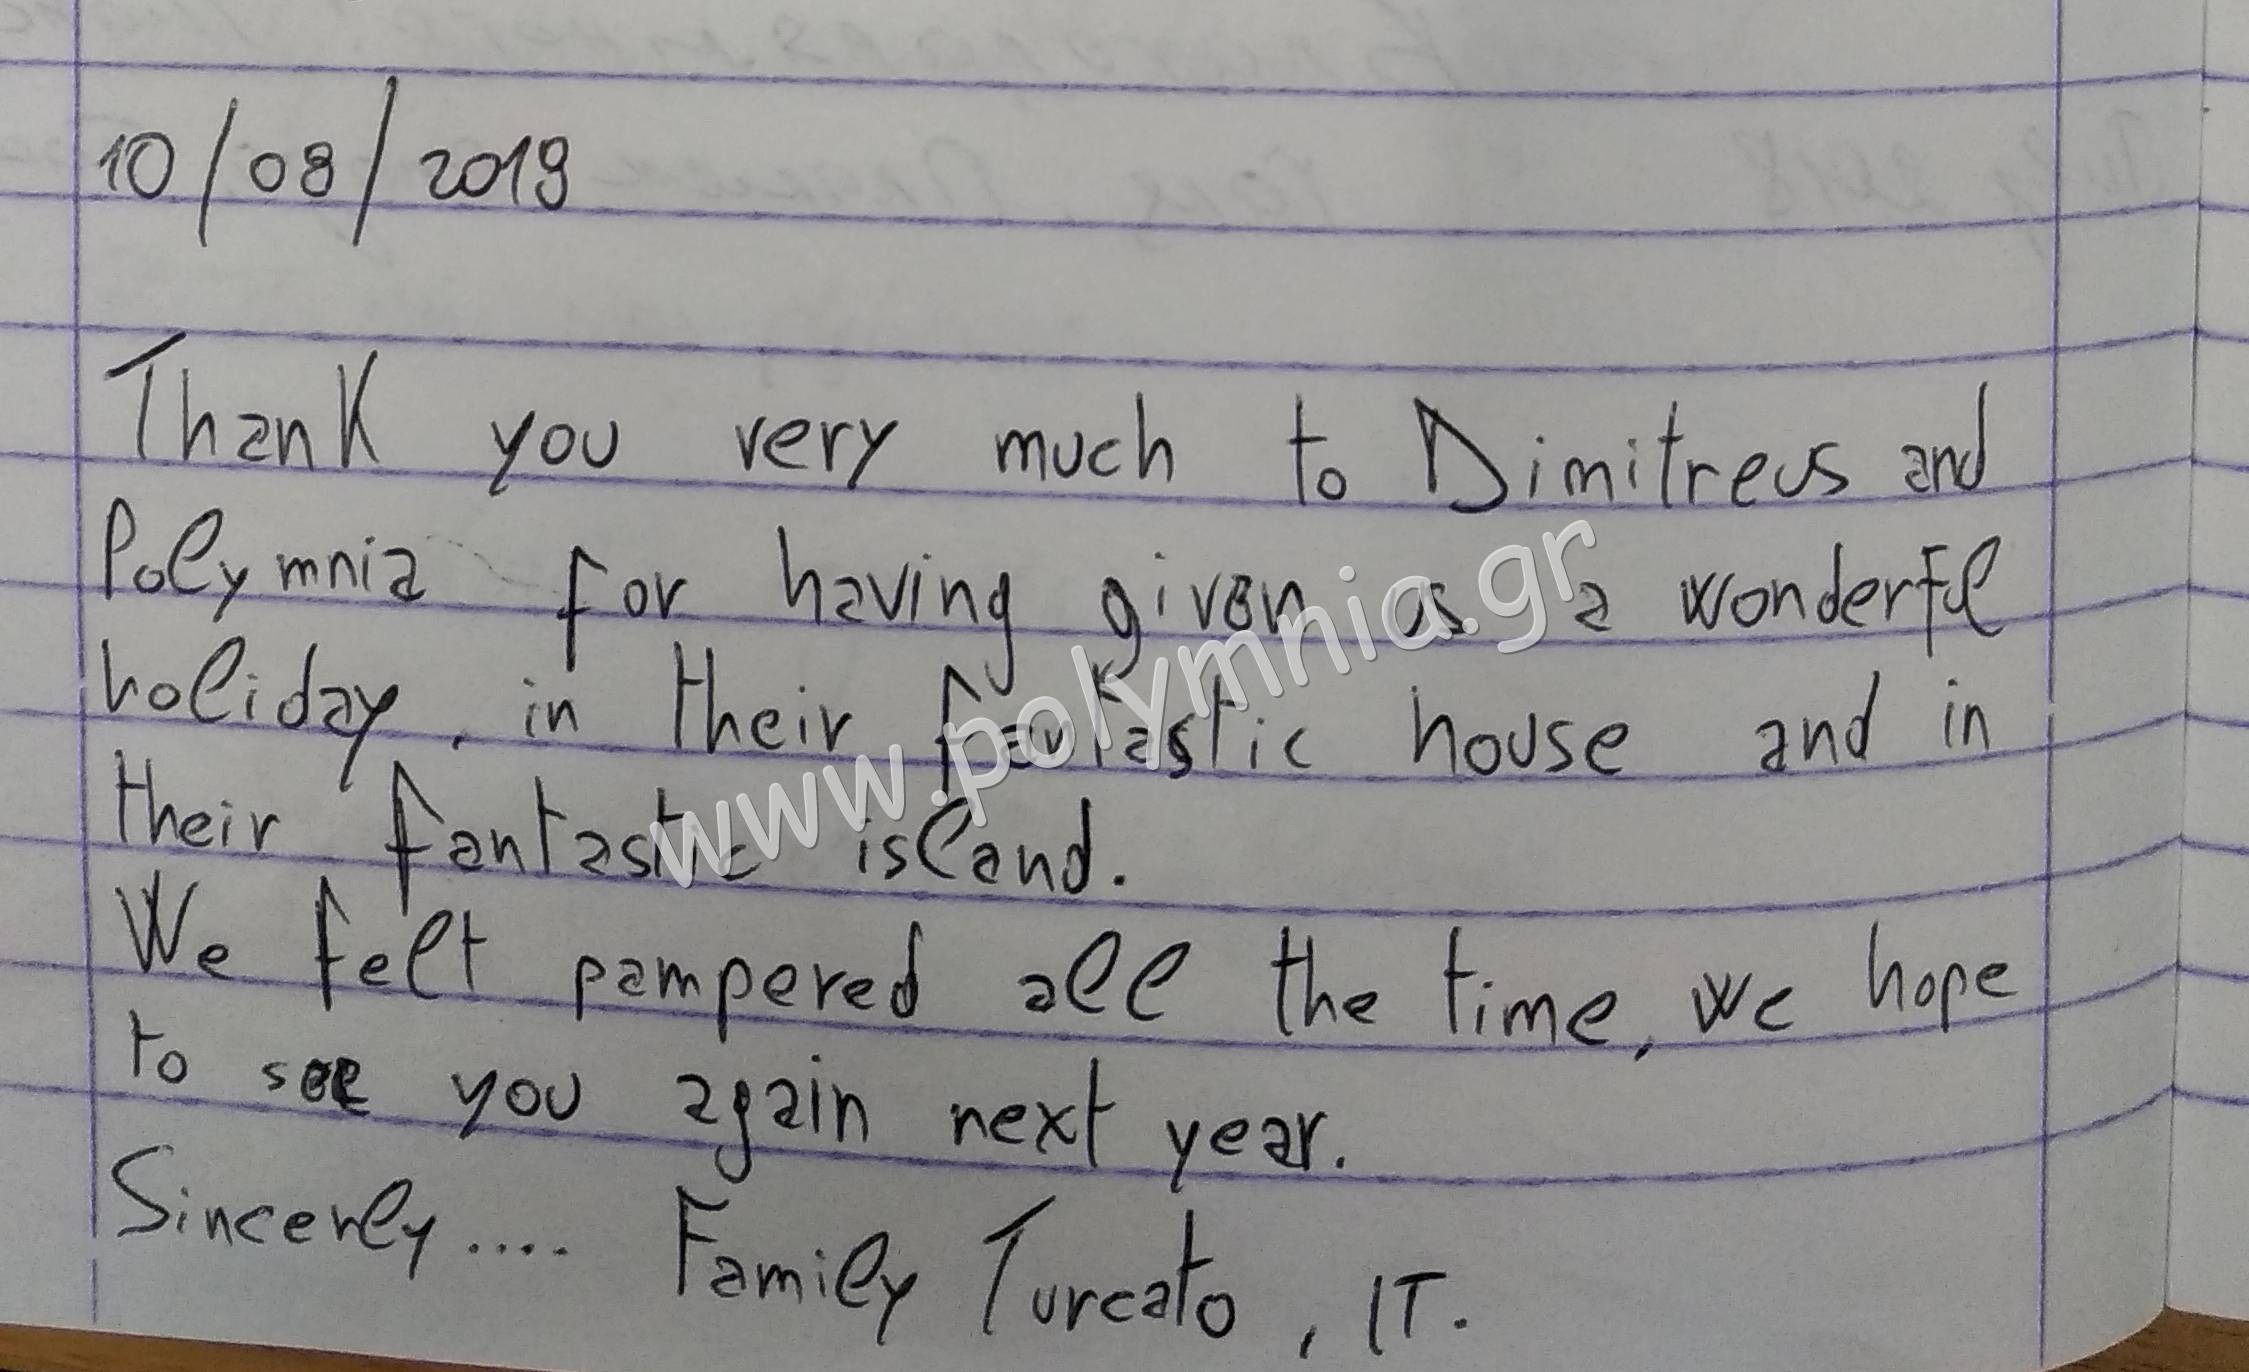 10/08/2019
Thank you very much to Dimitreus and
Polymnia for having given us a wonderful
holiday, in their fantastic house and in
their fantastic island.
We felt pampered all the time, we hope
to see you again next year.
Sincerly.... Family Turcato, IT.
www.polymnia.gr